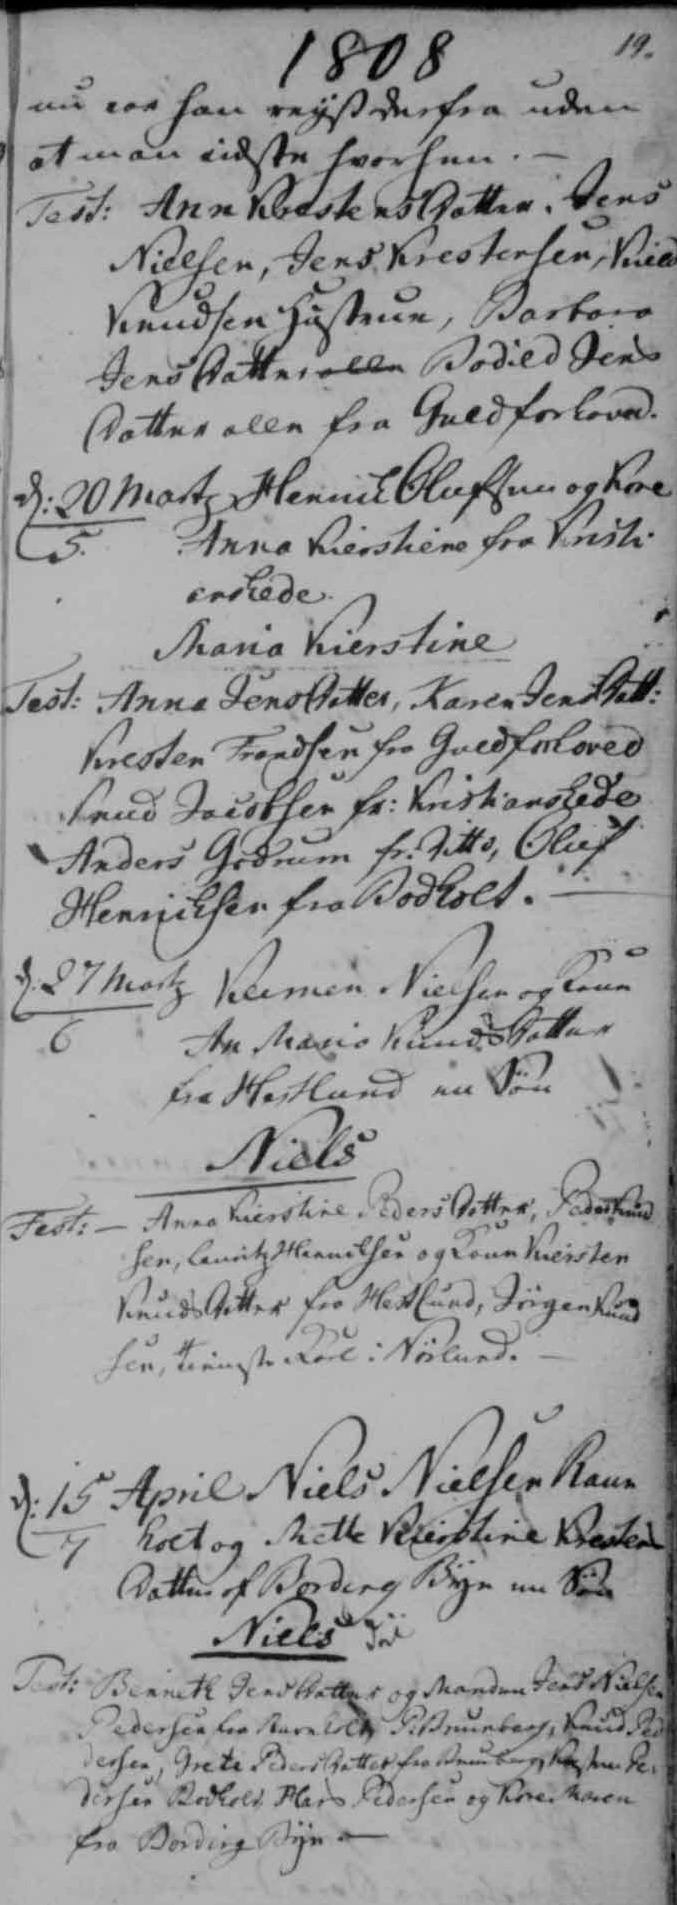 1808
19.
nu var han reyst derfra uden
at man vidste hvorhen. —
Test: Ann Krestens Datter. Jens
Nielsen, Jens Krestensen, Kield
Knudsen Hustrue, Barbara
Jens Datter alle Bodild Jens
Datter alle fra Guldforhoved.
d: 20 Martz Henrich Olufsen og Kone
5. Anna Kierstine fra Kristi
anshede.
Maria Kierstine
Test: Anna Jens Datter, Karen Jens Datt:
Kresten Frandsen fra Guldforhoved
Knud Jacobsen fr: Kristianshede
Anders Grdrum fr. Ditto, Oluf
Henrichsen fra Bodholt. —
d. 27 Martz Klemen Nielsen og Koun
6 An Maria Knuds Datter
fra Hestlund en Sön
Niels
Test: — Anna Kierstine Peders Datter, Peder Knud
sen, Lauritz Henrichsen og Koun Kiersten
Knuds Datter fra Hestlund, Jörgen Knud
sen, tienste Karl i Nörlund. —
d: 15 April Niels Nielsen Raun
7 holt og Mette Kierstine Krestens
Datter af Bording Bÿe en Sön
Niels
Test: Benneth Jens Datter og Manden Jens Nielsen
Pedersen fra Raunholt, P. Bruunberg, Knud Pe
dersen, Grete Peders Datter fra Bruunberg, Pe
dersen Bodholt Hans Pedersen og Kone Maren
fra Bording Bÿe —